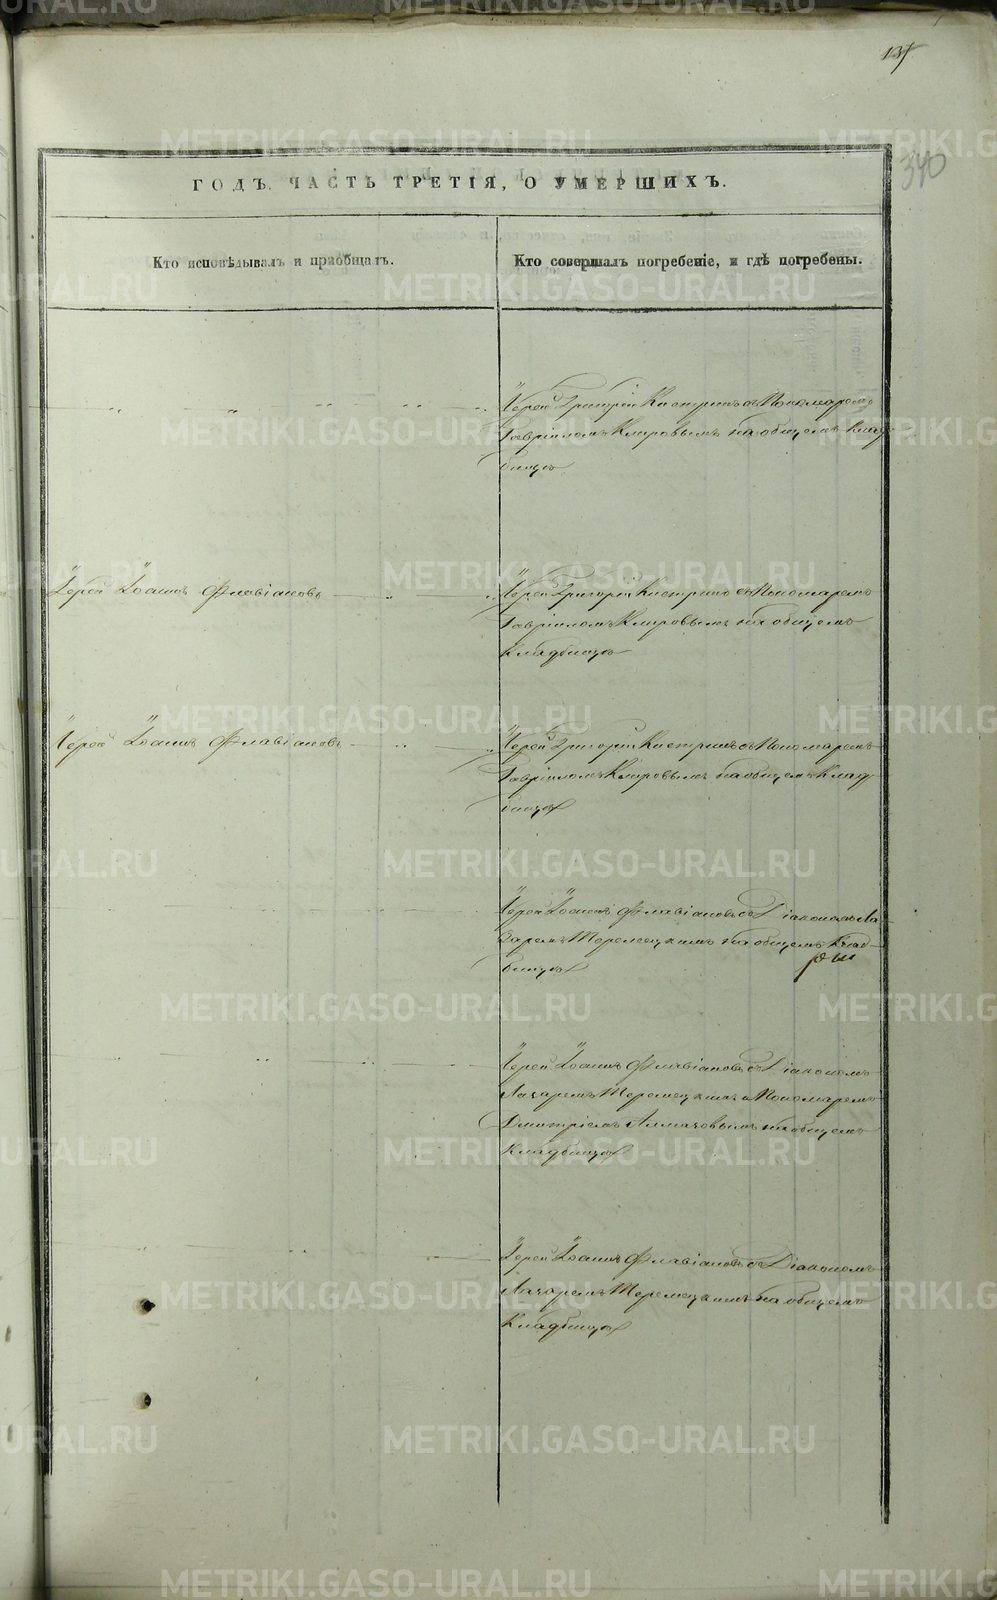 137
340
ГОДЪ. ЧАСТЬ ТРЕТІЯ, О УМЕРШИХЪ.
Кто исповѣдывалъ и пріобщалъ.
Кто совершалъ погребеніе, и гдѣ погребены.
Іерей Григорій с Пономаремъ
Гавріиломъ Кировымъ на общемъ Клад-
бищѣ
Іерей Іоаннъ Флавіановъ
Іерей Григорій съ Пономаремъ
Гавріиломъ Кировымъ на общемъ
Кладбищѣ
Іерей Іоаннъ Флавіановъ
Іерей Григорій съ Пономаремъ
Гавріиломъ Кировымъ на общемъ Клад-
бищѣ
Іерей Іоаннъ Флавіановъ съ Діакономъ Ла-
заремъ на общемъ Клад-
бищѣ
Іерей Іоаннъ Флавіановъ съ Діакономъ
Лазаремъ и Пономаремъ
Дмитріемъ на общемъ
Кладбищѣ
Іерей Іоаннъ Флавіановъ съ Діакономъ
Лазаремъ на общемъ
Кладбищѣ
METRIKI.GASO-URAL.RU